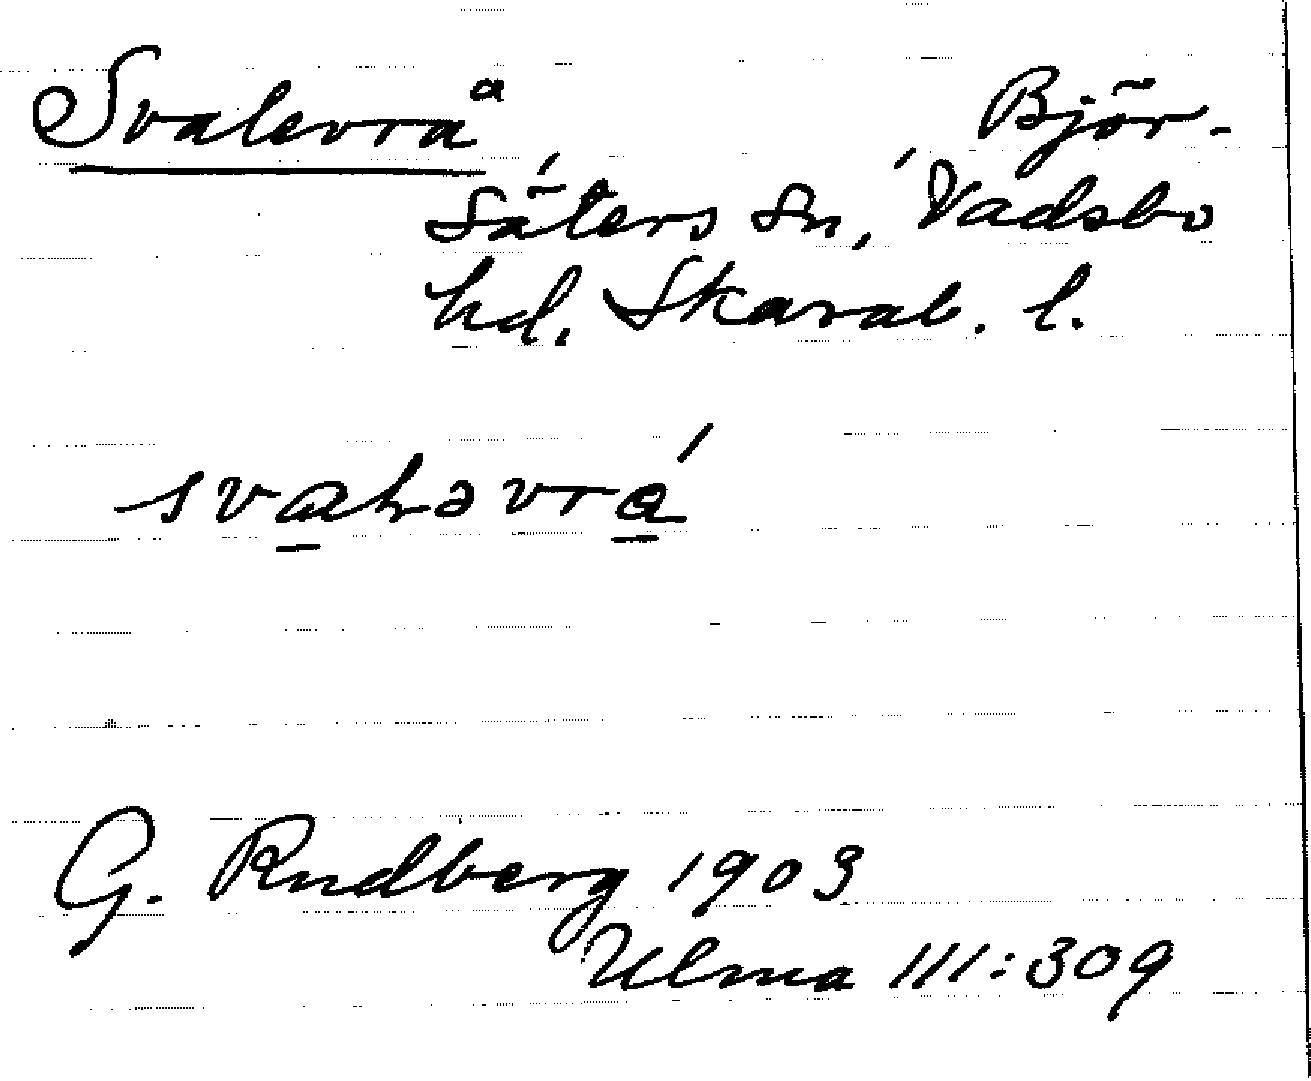 Svalevrå Björ-
säters sn, Vadsbo
hd. Skarab. l.
svaḷəvrá
G. Rudberg 1903
Ulma III:309